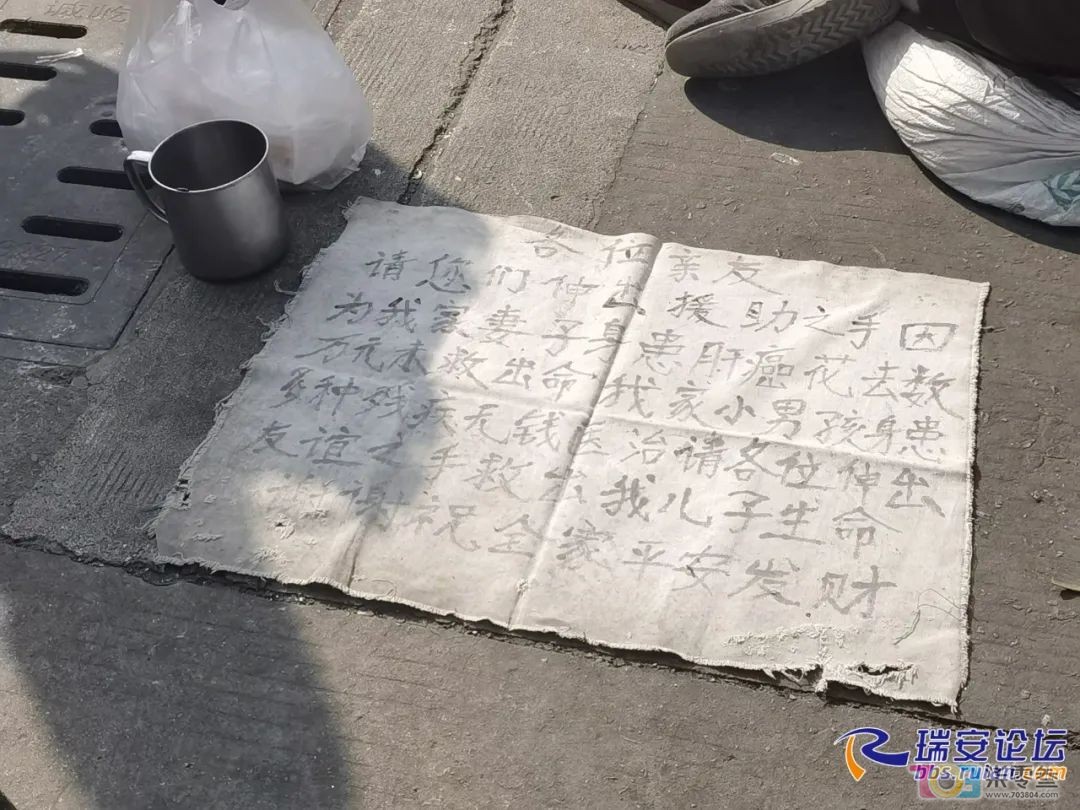 各位亲友
请您们伸出援助之手因
为我家妻子身患肝癌花去数
万元未救出命我家小男孩身患
多种残疾无钱医治请各位伸出
友谊之手救出我儿子生命
谢谢祝全家平安发财
瑞安论坛
bbs.ruian.com
www.703804.com